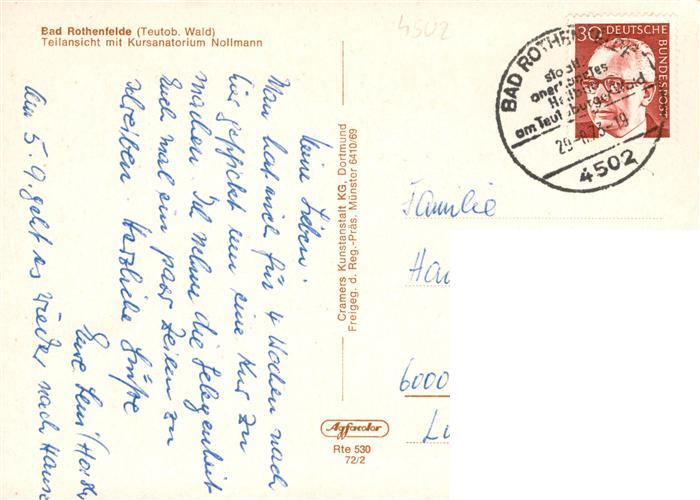 Bad Rothenfelde (Teutob. Wald)
Teilansicht mit Kursanatorium Nollmann
4502
Meine Lieben!
Man hat mich für 4 Wochen nach
hier geschickt um eine Kur zu
machen. Ich nehme die Gelegenheit
Euch mal ein paar Zeilen zu
schreiben. Herzliche Grüße
Eure
Am 5.9. geht es wieder nach Hause
Cramers Kunstanstalt KG, Dortmund
Freigeg. d. Reg.-Präs. Münster 6410/69
Agfacolor
Rte 530
72/2
30 DEUTSCHE
BUNDESPOST
BAD ROTHENFELDE
staatl.
anerkanntes
Heilbad
am Teutoburger Wald
4502
Familie
Ha
6000